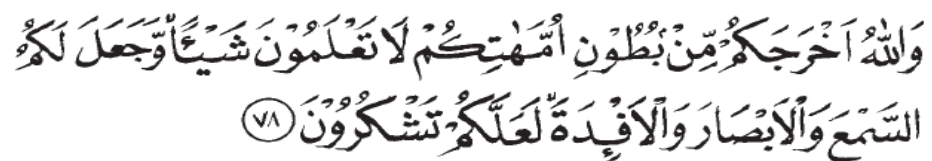 وَاللّٰهُ اَخْرَجَكُمْ مِّنْۢ بُطُوْنِ اُمَّهٰتِكُمْ لَا تَعْلَمُوْنَ شَيْـًٔاۙ وَّجَعَلَ لَكُمُ
السَّمْعَ وَالْاَبْصَارَ وَالْاَفْـِٕدَةَۙ لَعَلَّكُمْ تَشْكُرُوْنَ ﴿٧٨﴾